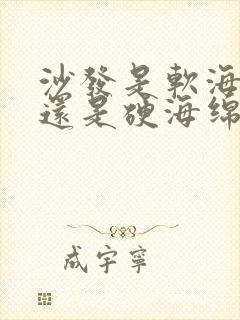 沙發是軟海
還是硬海綿
成宇寧